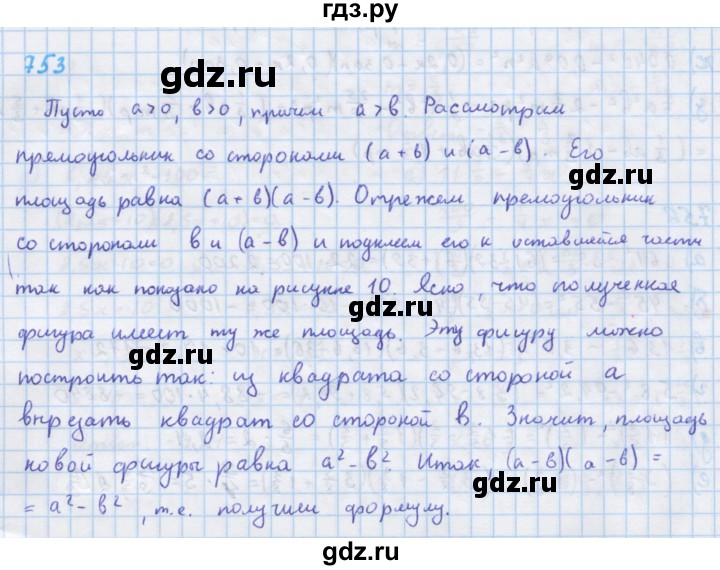 гдз.ру
753
gdz.ru
Пусть a>0, b>0, причем a>b. Рассмотрим
прямоугольник со сторонами (a+b) и (a-b). Его
gdz.ru
площадь равна (a+b)(a-b). Отрежем прямоугольник
со сторонами b и (a-b) и подклеем его к оставшейся части
так как показано на рисунке 10. Ясно, что полученная
gdz.ru
фигура имеет ту же площадь. Эту фигуру можно
gdz.ru
построить так: из квадрата со стороной a
вырезать квадрат со стороной b. Значит, площадь
новой фигуры равна a²-b². Итак, (a-b)(a-b)=
gdz.ru
=a²-b², т.е. получили формулу.
gdz.ru